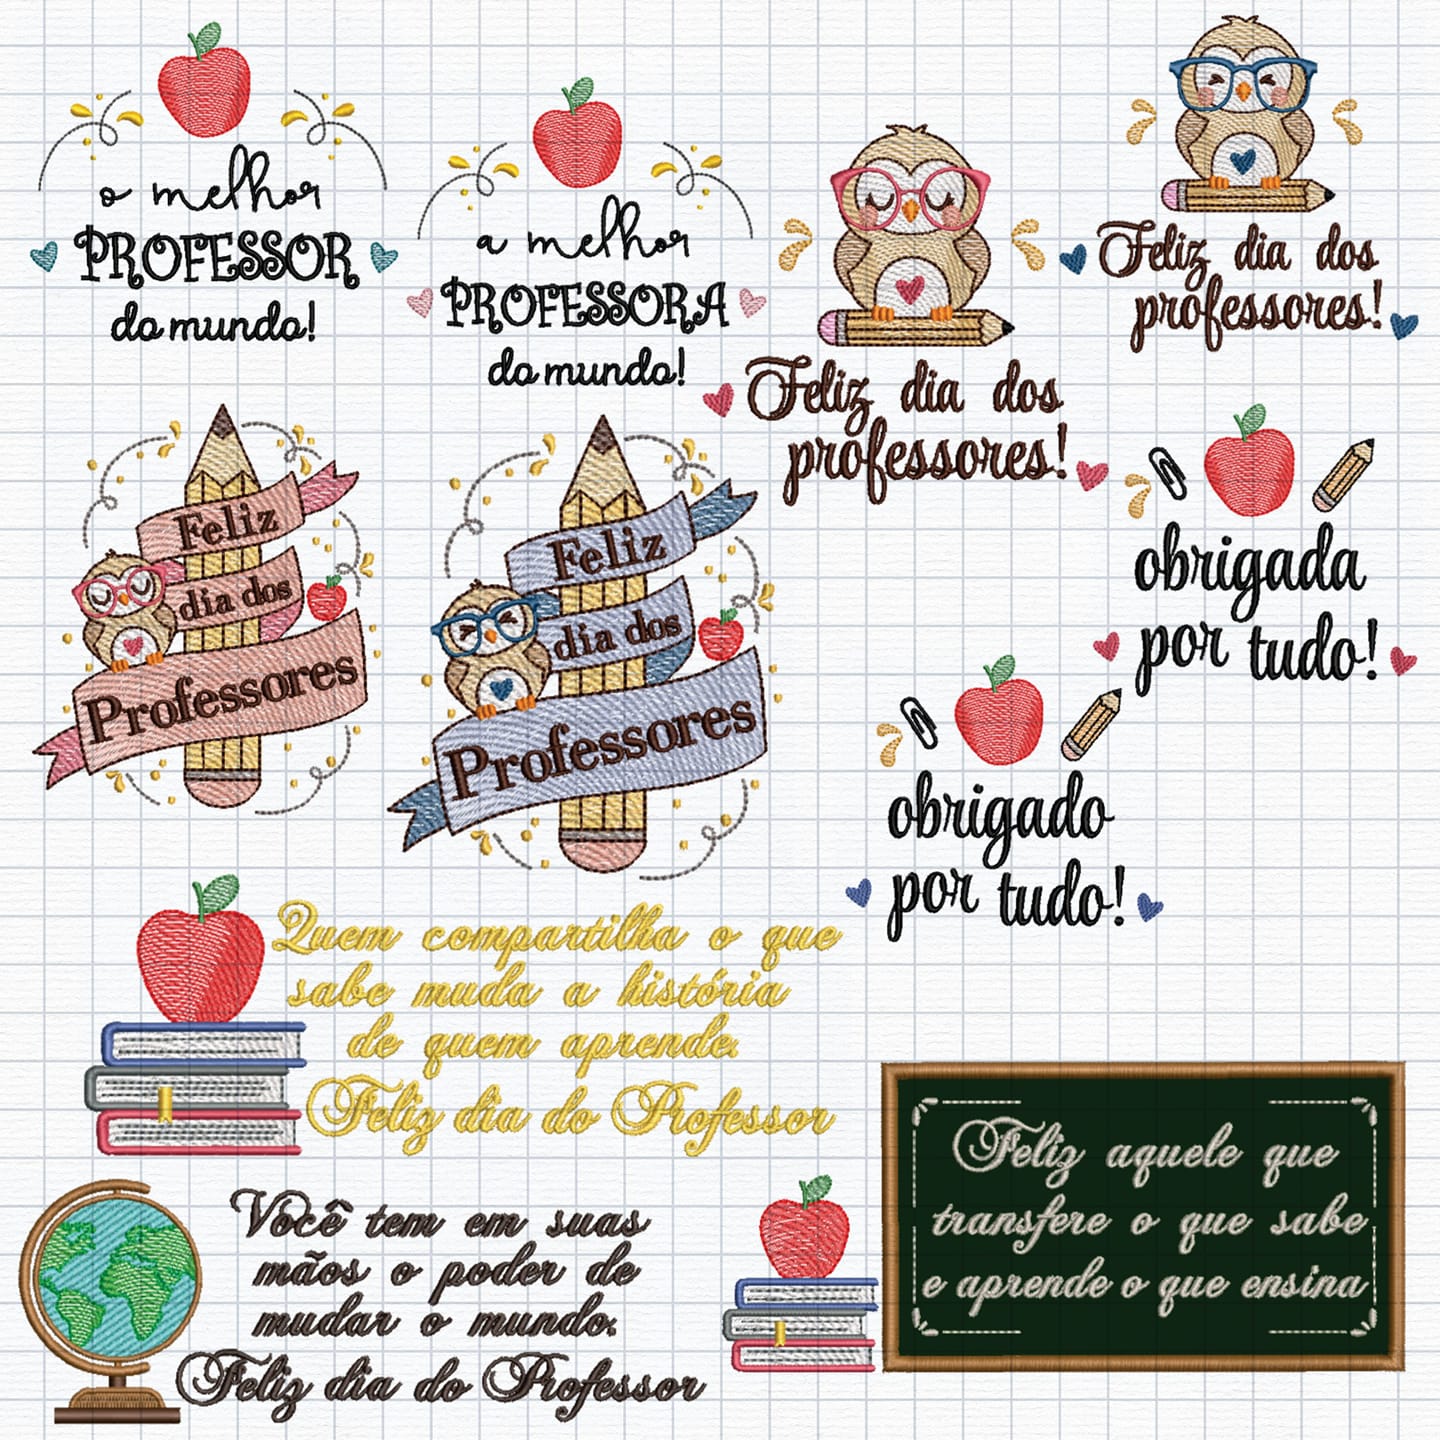 o melhor
PROFESSOR
do mundo!
a melhor
PROFESSORA
do mundo!
Feliz dia dos
professores!
Feliz dia dos
professores!
Feliz
dia dos
Professores
Feliz
dia dos
Professores
obrigada
por tudo!
obrigado
por tudo!
Quem compartilha o que
sabe muda a história
de quem aprende.
Feliz dia do Professor
Você tem em suas
mãos o poder de
mudar o mundo.
Feliz dia do Professor
Feliz aquele que
transfere o que sabe
e aprende o que ensina